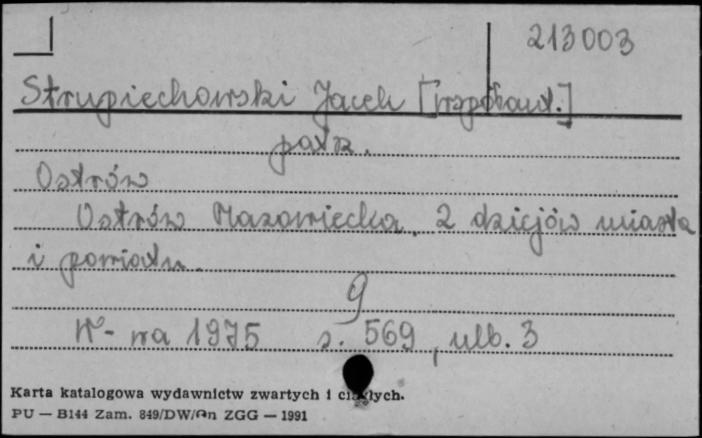 213003
Strupiechowski Jacek [współaut.]
patrz.
Ostrów
Ostrów Mazowiecka. Z dziejów miasta
i powiatu.
9
W-wa 1975 s. 569, ulb. 3
Karta katalogowa wydawnictw zwartych i ciągłych.
PU — B144 Zam. 849/DW/On ZGG — 1991